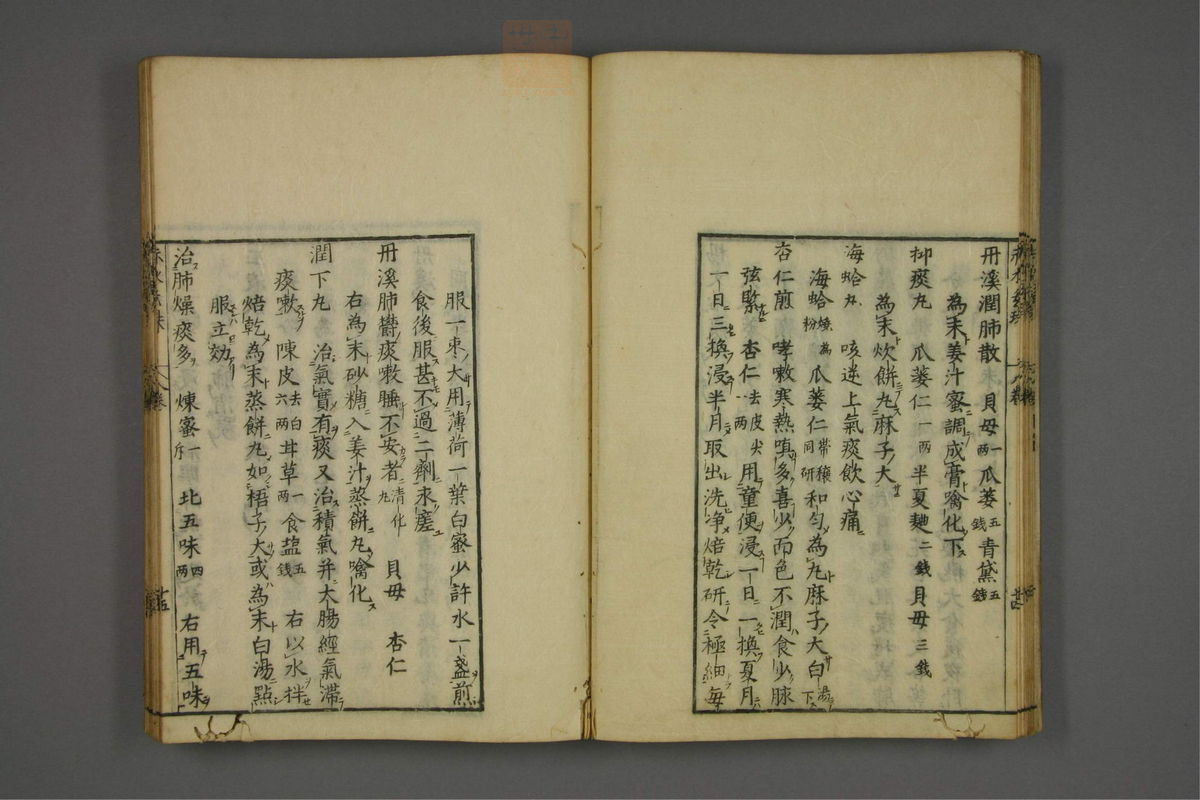 丹溪潤肺散 貝母一兩 瓜蔞五錢 青黛五錢
為末姜汁蜜調成膏噙化下
抑痰丸 瓜蔞仁一兩 半夏麯二錢 貝母三錢
為末炊餅丸麻子大
海蛤丸 咳逆上氣痰飲心痛
海蛤燒為粉 瓜蔞仁帶穰同研 和勻為丸麻子大白湯下
杏仁煎 哮嗽寒熱嗔多喜少而色不潤食少脉
弦緊 杏仁去皮尖一兩 用童便浸一日一換夏月
一日三換浸半月取出洗淨焙乾研令極細每
服一棗大用薄荷一葉白蜜少許水一盞煎
食後服甚不過二劑來瘥
丹溪肺欝痰嗽睡不安者清化丸 貝母 杏仁
右為末砂糖入姜汁蒸餅丸噙化
潤下丸 治氣實有痰又治積氣并大腸經氣滯
痰嗽 陳皮去白六兩 甘草一兩 食塩五錢 右以水拌
焙乾為末蒸餅丸如梧子大或為末白湯點
服立効
治肺燥痰多 煉蜜一斤 北五味四兩 右用五味